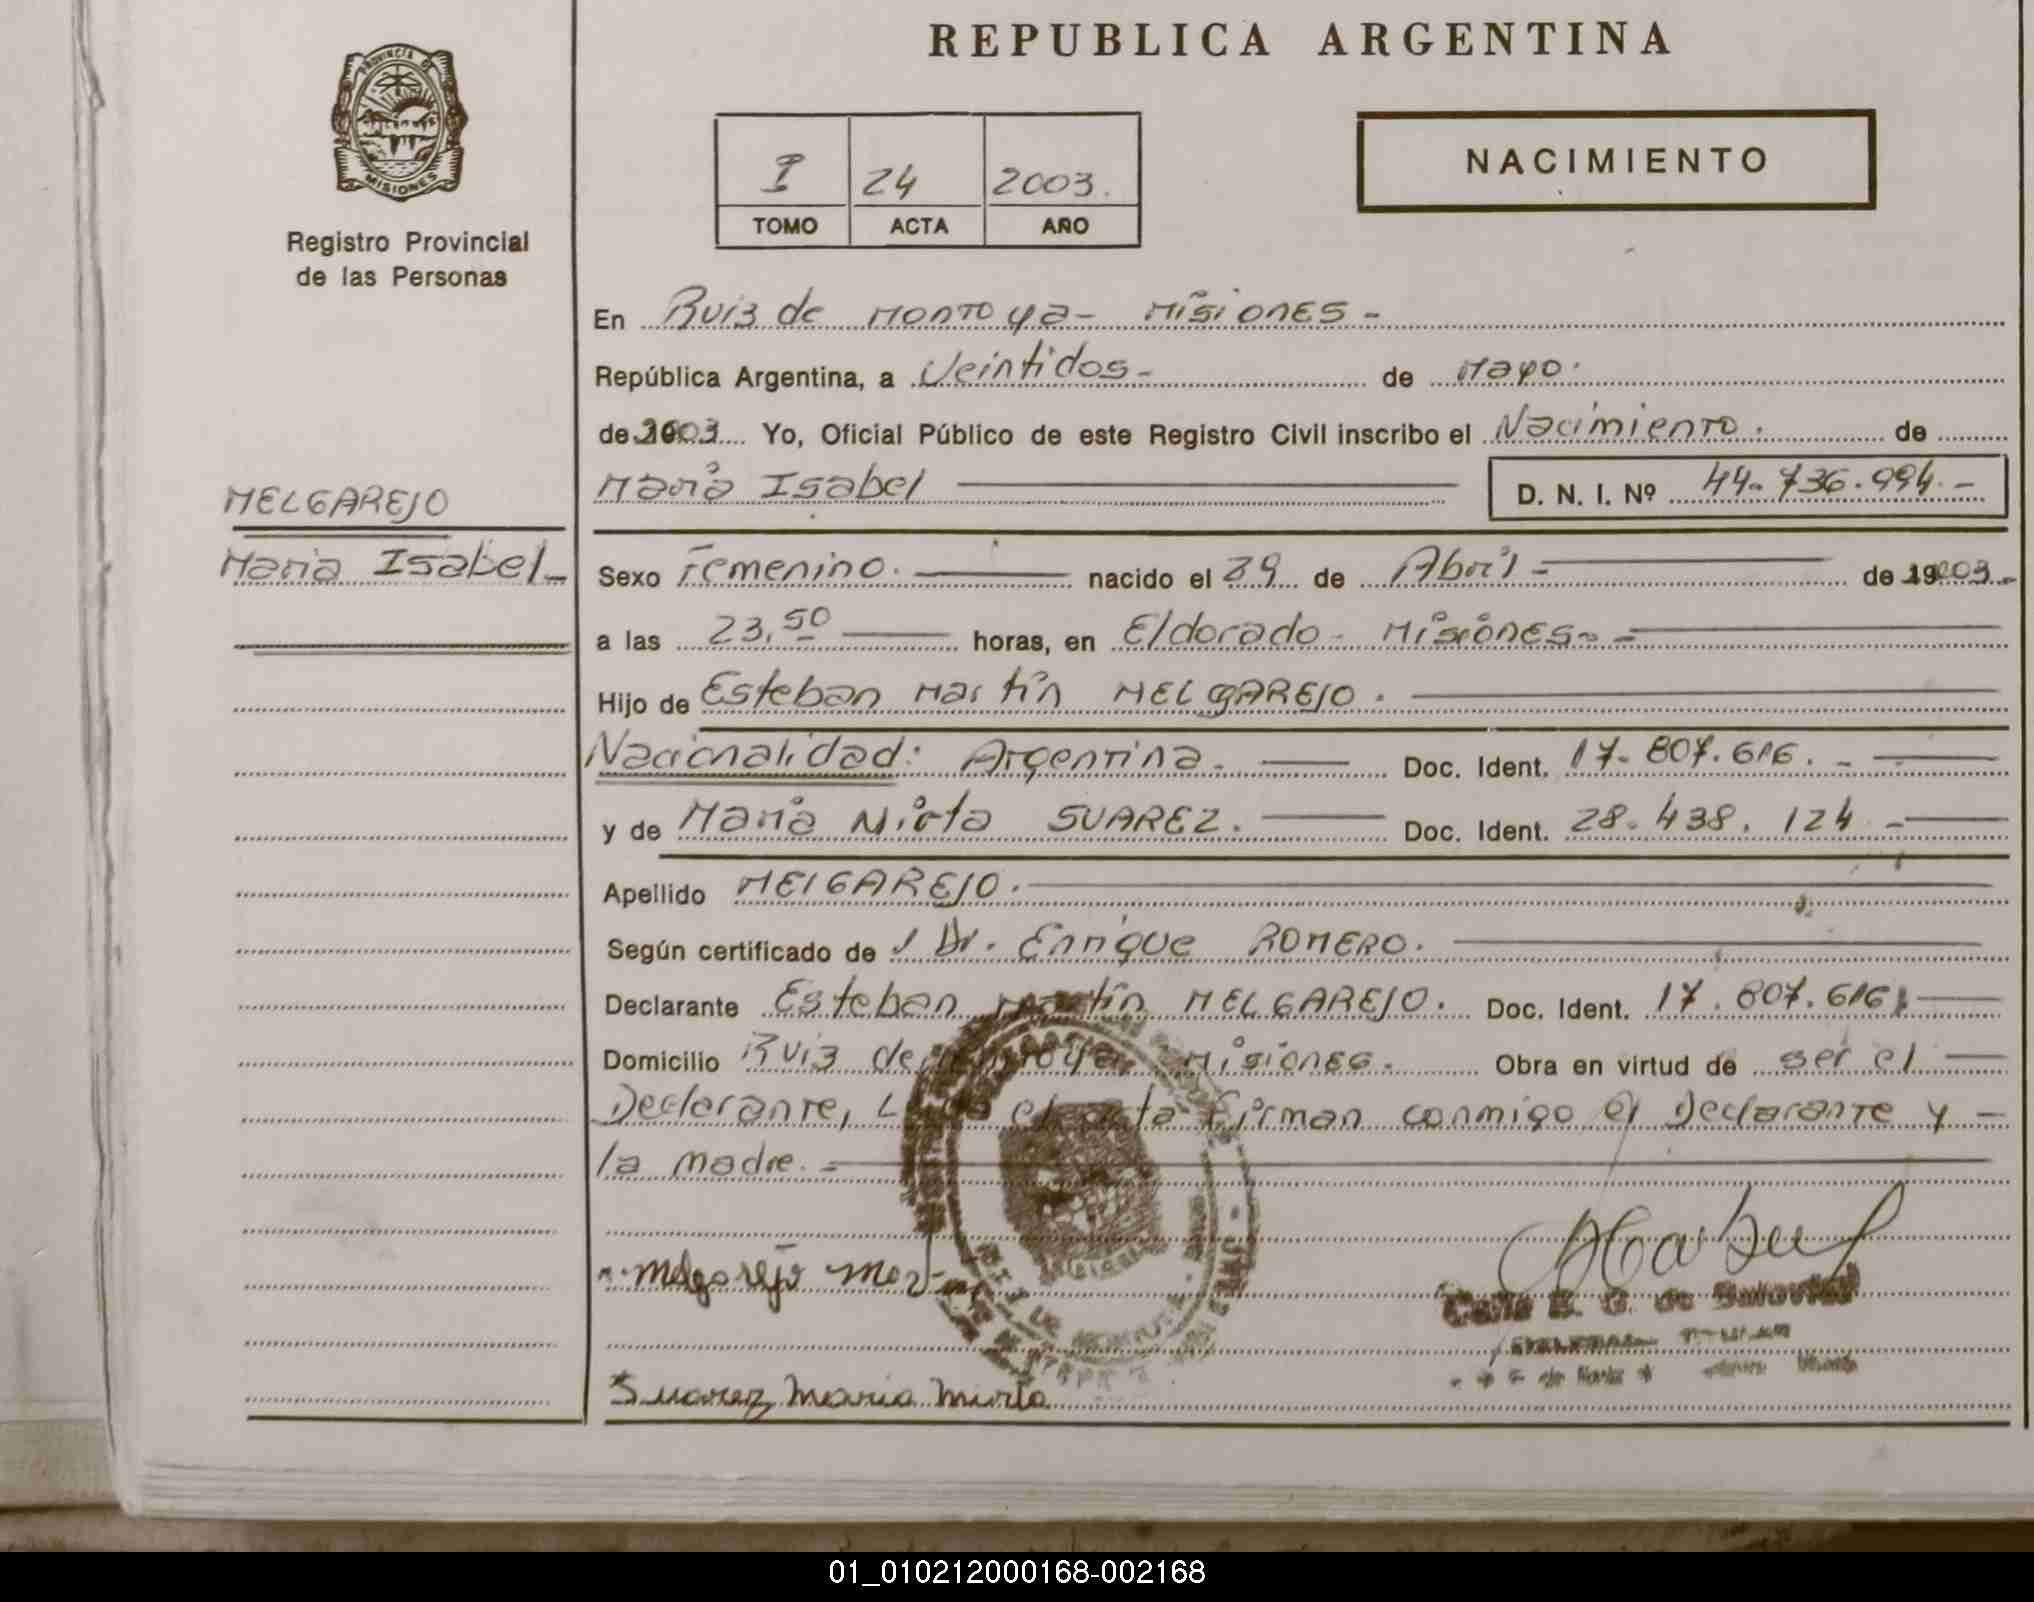 REPUBLICA ARGENTINA
PROVINCIA DE
MISIONES
Registro Provincial
de las Personas
I 24 2003.
TOMO ACTA AÑO
NACIMIENTO
En Ruiz de Montoya - Misiones -
República Argentina, a Veintidos - de Mayo.
de 2003 Yo, Oficial Público de este Registro Civil inscribo el Nacimiento. de
Maria Isabel D. N. I. Nº 44.736.994.-
MELGAREJO
Maria Isabel -
Sexo Femenino. nacido el 29 de Abril - de 2003.-
a las 23,50 horas, en Eldorado - Misiones -
Hijo de Esteban Martín MELGAREJO.
Nacionalidad: Argentina. Doc. Ident. 17.807.616. -
y de Maria Mirta SUAREZ. Doc. Ident. 28.438.124 -
Apellido MELGAREJO.
Según certificado de / Dr. Enrique ROMERO.
Declarante Esteban Martín MELGAREJO. Doc. Ident. 17.807.616
Domicilio Ruiz de Montoya Misiones. Obra en virtud de ser el
Declarante, el acta firman conmigo el Declarante y -
la madre. -
Melgarejo
Suarez Maria Mirta
01_010212000168-002168